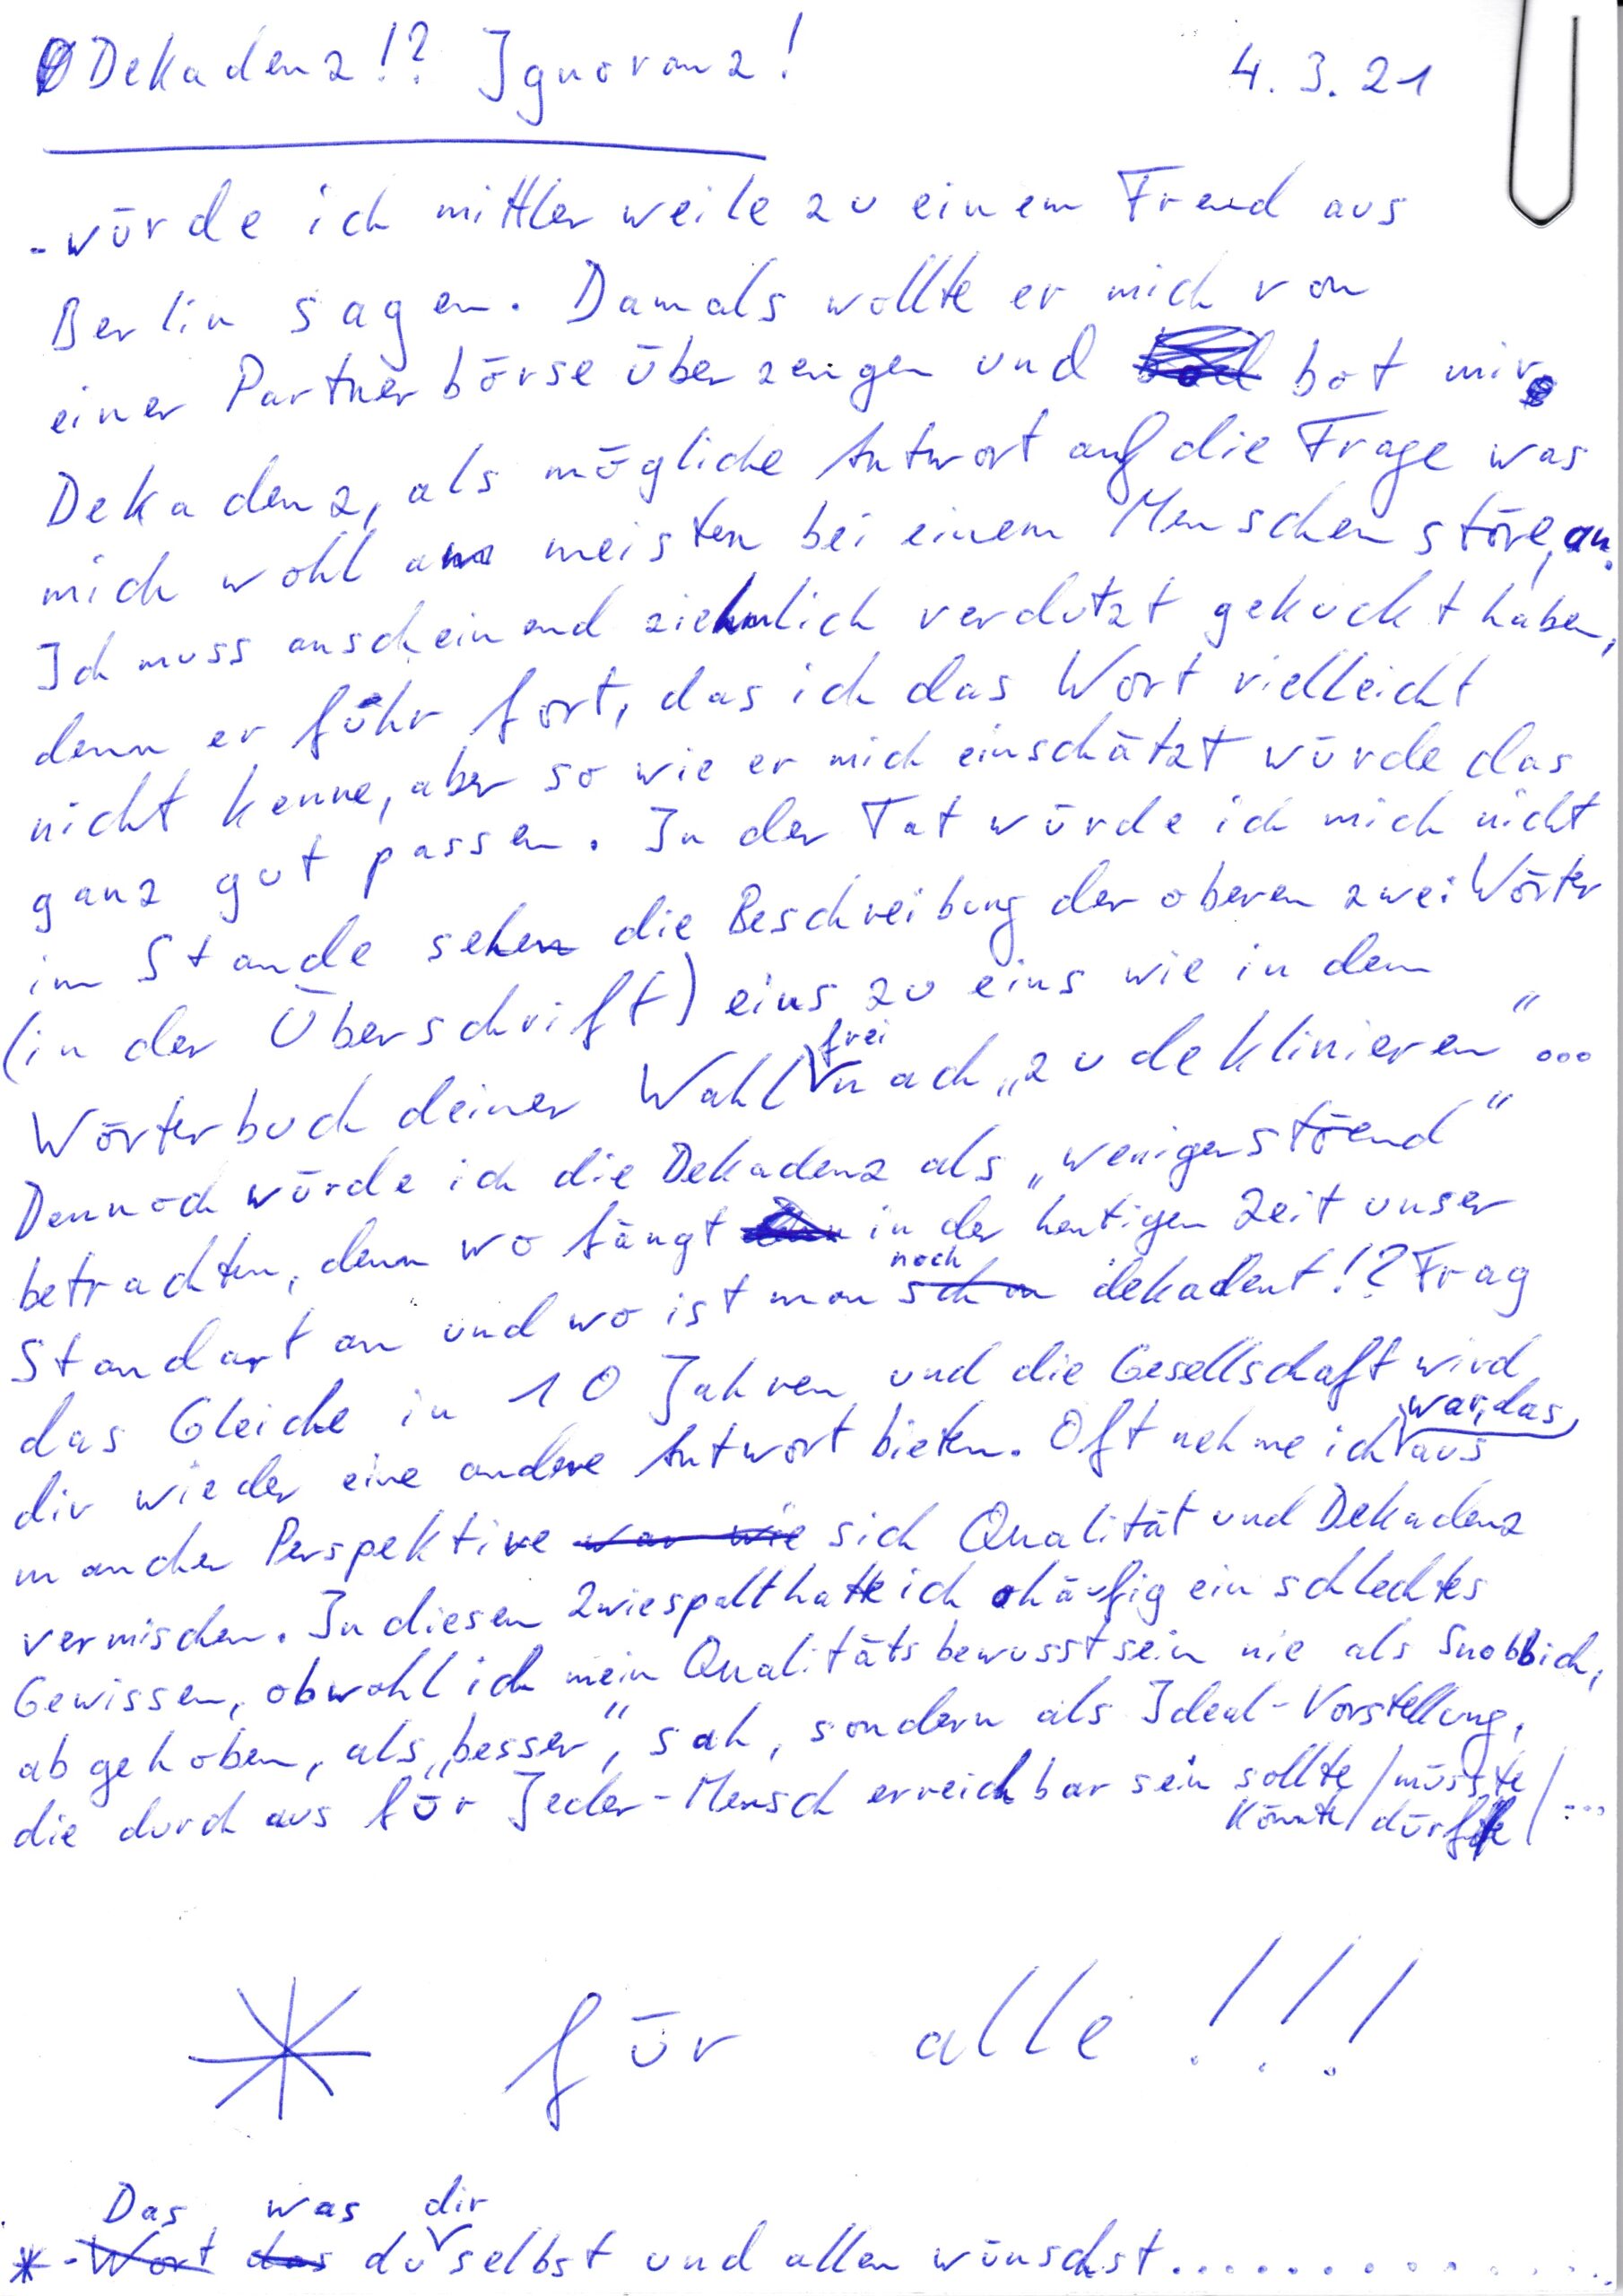 Dekadenz!? Ignoranz! 4.3.21
- würde ich mittlerweile zu einem Freund aus
Berlin sagen. Damals wollte er mich von
einer Partnerbörse überzeugen und bot mir
Dekadenz, als mögliche Antwort auf die Frage was
mich wohl am meisten bei einem Menschen störe, an.
Ich muss anscheinend ziehmlich verdutzt gekuckt haben,
denn er fuhr fort, das ich das Wort vielleicht
nicht kenne, aber so wie er mich einschätzt würde das
ganz gut passen. In der Tat würde ich mich nicht
im Stande sehen die Beschreibung der oberen zwei Wörter
(in der Überschrift) eins zu eins wie in dem
Wörterbuch deiner Wahl frei nach „zu deklinieren" ...
Dennoch würde ich die Dekadenz als „weniger störend"
betrachten, denn wo fängt in der heutigen Zeit unser
Standart an und wo ist man noch schon dekadent!? Frag
das Gleiche in 10 Jahren und die Gesellschaft wird
dir wieder eine andere Antwort bieten. Oft nehme ich war, das aus
mancher Perspektive war wie sich Qualität und Dekadenz
vermischen. In diesen Zwiespalt hatte ich häufig ein schlechtes
Gewissen, obwohl ich mein Qualitätsbewusstsein nie als Snobbich,
abgehoben, als „besser", sah, sondern als Ideal-Vorstellung,
die durchaus für Jeder-Mensch erreichbar sein sollte/müsste/...
könnte/dürfte/
* für alle!!!
Das was dir
* - Wort das du selbst und allen wünschst..............